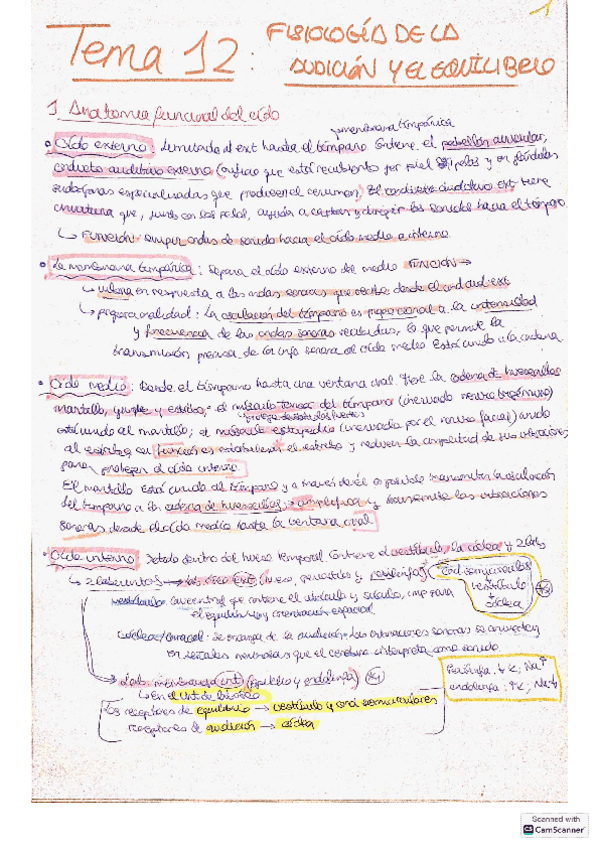 1
Tema 12: FISIOLOGÍA DE LA
AUDICIÓN Y EL EQUILIBRIO
1. Anatomía funcional del oído
membrana timpánica
Oído externo: limitado al ext hasta el tímpano. Contiene el pabellón auricular,
conducto auditivo externo (orificio que está recubierto por piel pelos y en glándulas
sudoríparas especializadas que producen el cerumen). El conducto auditivo ext tiene
curvatura que, junto con los pelos, ayudan a captar y dirigir los sonidos hacia el tímpano
↳ FUNCIÓN: ondas de sonido hacia el oído medio e interno
La membrana timpánica: separa el oído externo del medio FUNCIÓN →
↳ vibrar en respuesta a las ondas sonoras que recibe desde el cond. aud. ext
↳ proporcionalidad: la oscilación del tímpano es proporcional a la intensidad
y frecuencia de las ondas sonoras recibidas, lo que permite la
transmisión precisa de la info sonora al oído medio. Está unido a la cadena
Oído medio: Desde el tímpano hasta una ventana oval. Tiene la cadena de huesecillos
martillo, yunque y estribo. el músculo tensor del tímpano (inervado nervio trigémino)
está unido al martillo; el músculo estapedio (inervado por el nervio facial) unido
al estribo su función es estabilizar el estribo y reducir la amplitud de sus vibraciones
para proteger el oído interno.
El martillo está unido al tímpano y a través de él es posible transmitir la oscilación
del tímpano a la cadena de huesecillos; amplifica y transmite las vibraciones
sonoras desde el oído medio hasta la ventana oval
Oído interno: dentro del hueso temporal. Contiene el vestíbulo, la cóclea y 2 lab.
↳ 2 laberintos → lab. óseo ext (hueso, periostio y perilinfa) Cond. semicirculares
+
vestíbulo
+
cóclea
vestíbulo: cav. central que contiene el utrículo y sáculo, imp. para
el equilibrio y orientación espacial
Cóclea/caracol: se encarga de la audición. Las vibraciones sonoras se convierten
en señales nerviosas que el cerebro interpreta como sonido.
lab. membranoso int (epitelio y endolinfa)
↳ En el int. de lab. óseo
Los receptores de equilibrio → vestíbulo y cond. semicirculares
receptores de audición → cóclea
Perilinfa: ↓K; Na↑
endolinfa: ↑K; Na↓
Scanned with
CS CamScanner